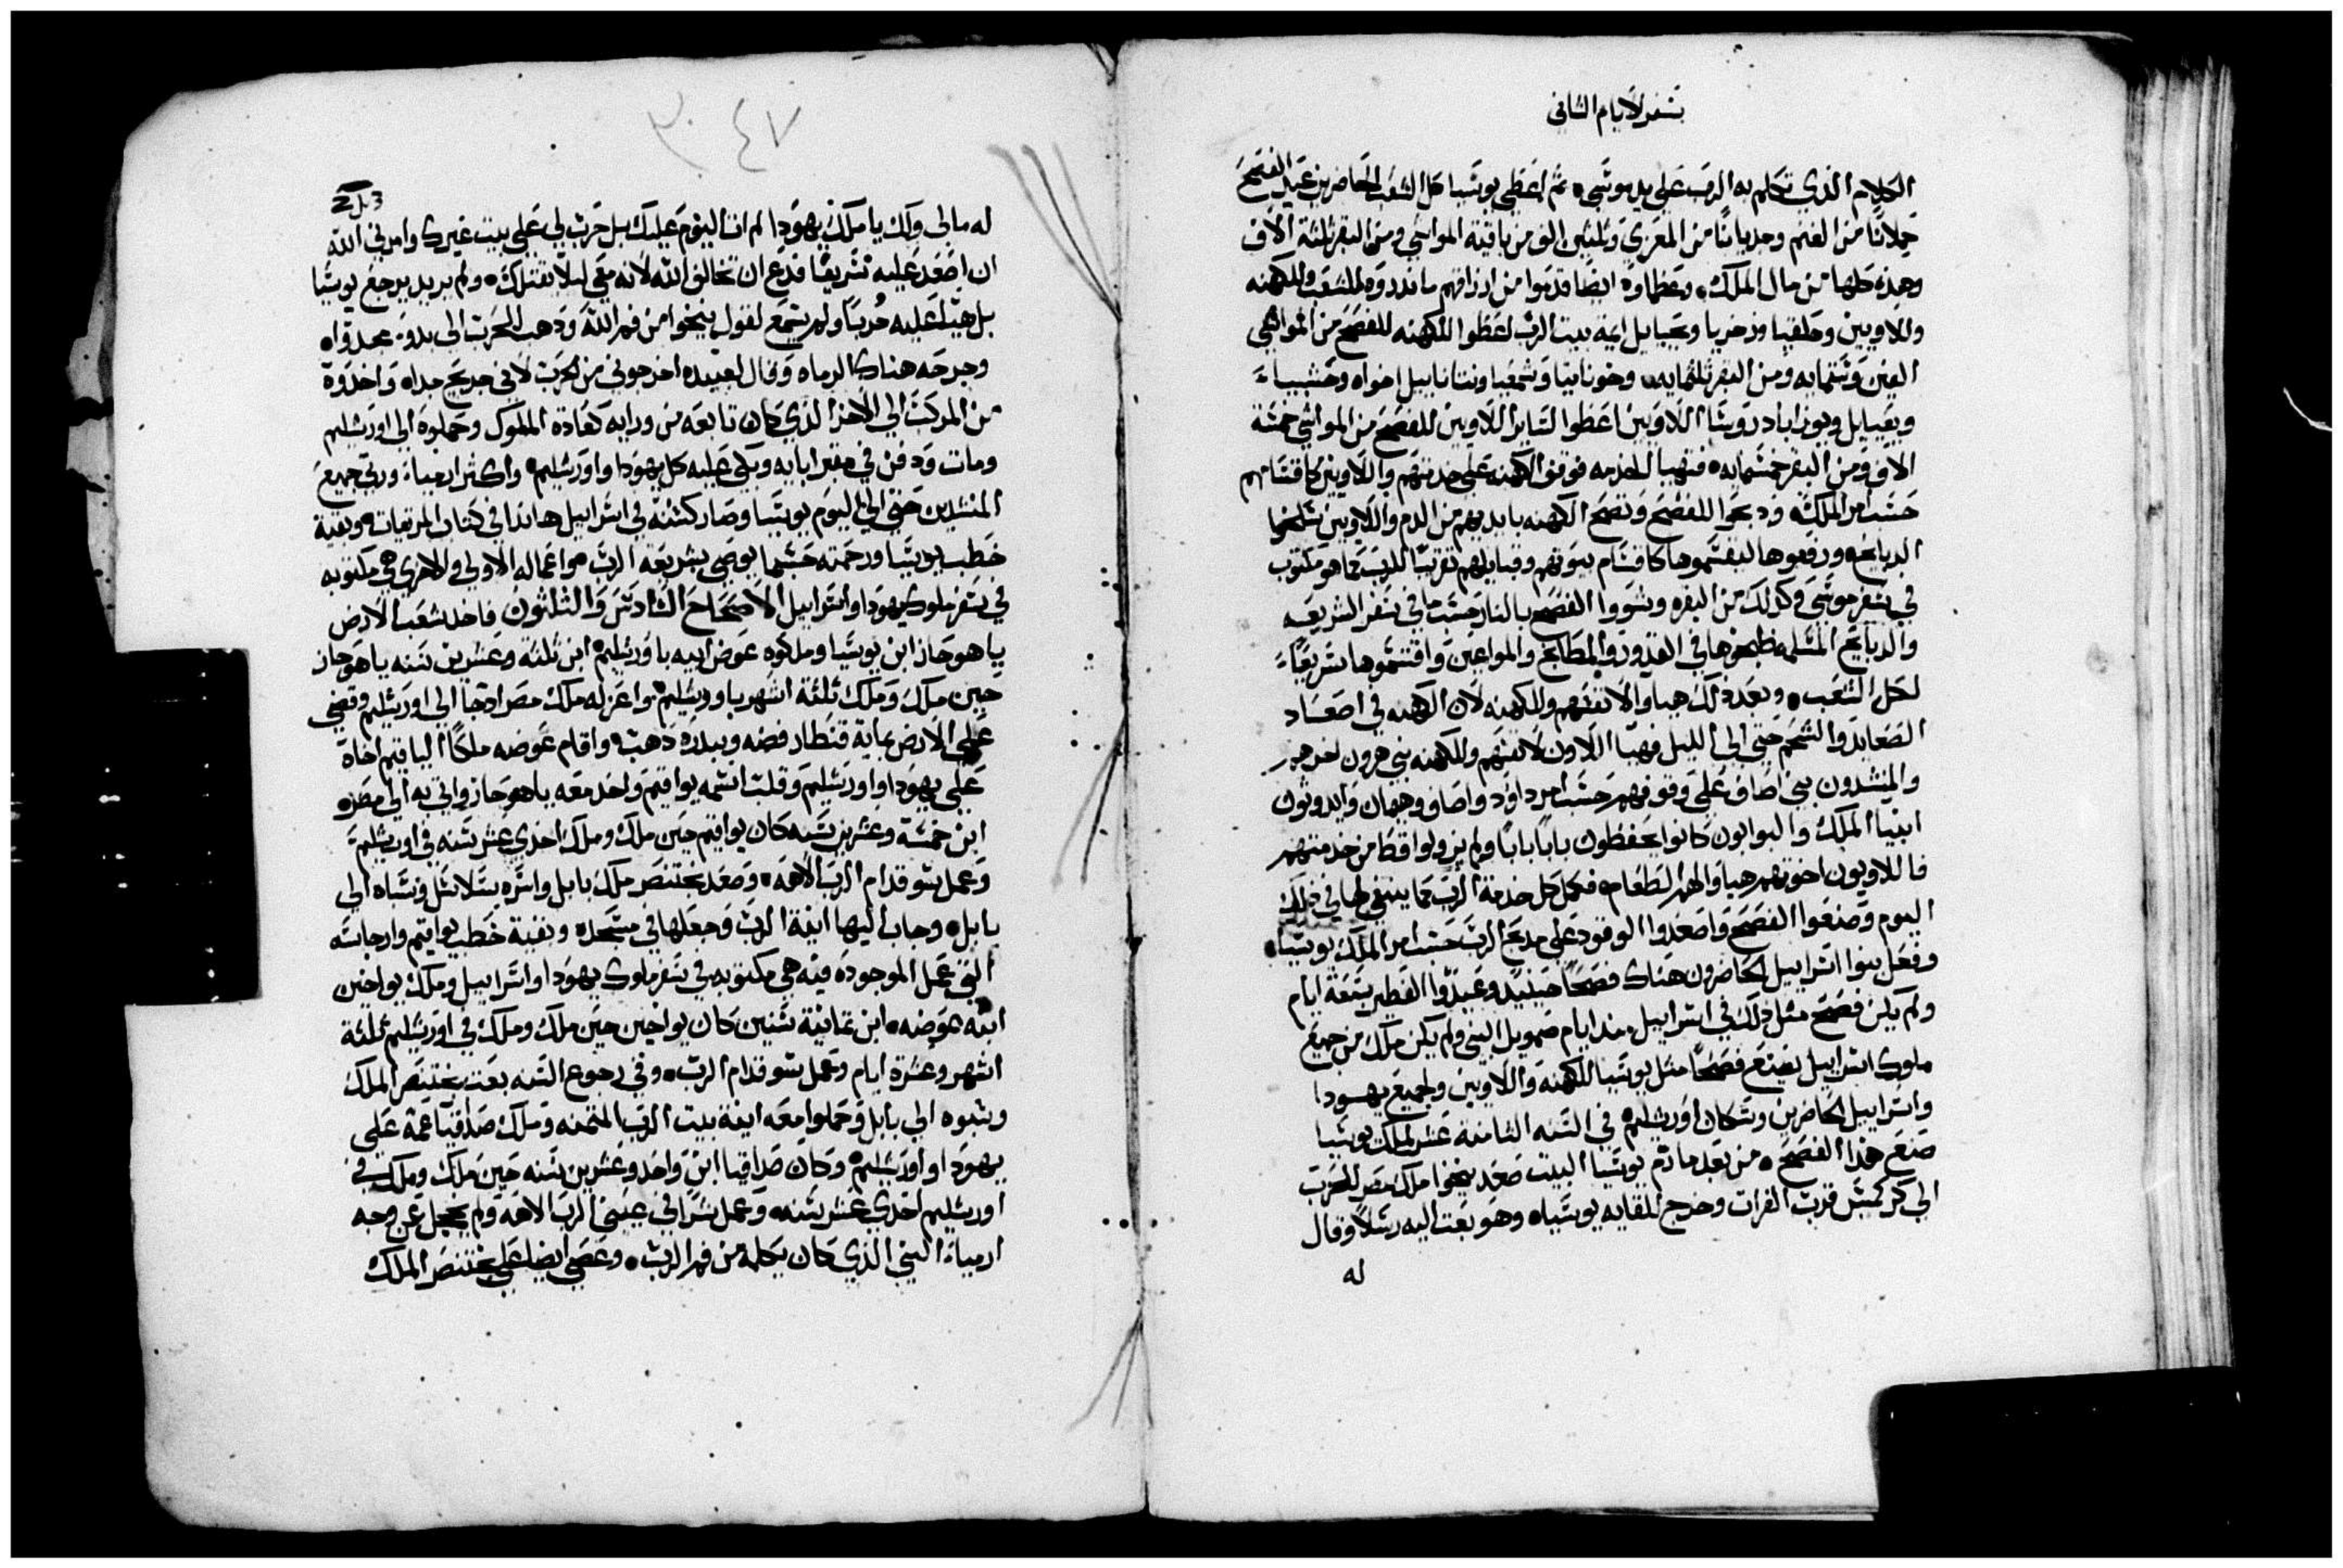 سفر لايام الثاني
الكلام الذي تكلم به الرب علي يد موسي ثم اعطي يوسيا كل الشعب الحاضرين عيد الفصح
حملانا من الغنم وجديانا من المعزي وثلثين الف من باقية المواشي ومن البقر ثلثة الاف
وهذه كلها من مال الملك وعظماوه ايضا قدموا من ارزاقهم ما نذروه للشعب وللكهنه
واللاويين وحلقيا وزخريا ويحييايل ايمة بيت الرب اعطوا للكهنه للفصح من المواشي
الفين وستمايه ومن البقر ثلثمايه وخونانيا وشمعيا ونتنانييل اخواه وحشبياء
ويعيايل ويوزاباد روسا اللاويين اعطوا لساير اللاويين للفصح من المواشي خمسة
الاف ومن البقر خمسمايه فتهيا الخدمه فوقفوا الكهنه علي خدمتهم واللاويين كاقسامهم
حسب امر الملك وذبحوا للفصح ونضح الكهنه بايديهم من الدم واللاويين سلخوا
الدبايح ورفعوها ليقسموها كاقسام بيوتهم وقبايلهم تقربا للرب كما هو مكتوب
في سفر موسي وكذلك من البقره وشووا الفصح بالنار حسب ما في سفر الشريعه
والدبايح السلمه طبخوها في القدور والمطابخ والمواعين واقتسموها سريعاً
لكل الشعب وبعد ذلك هياوا لانفسهم وللكهنه لان الكهنه في اصعاد
الصعايد والشحم حتي الي الليل فهيا اللاون لانفسهم وللكهنه بني هرون اخرهم
والمنشدون بني اصاف علي وقوفهم حسب امر داود واصاف وهيمان وايدوثون
انبيا الملك والبوابون كانوا يحفظون باباً باباً ولم يزولوا قط من خدمتهم
فاللاويون اخوتهم هياوا لهم الطعام فكمل كل خدمة الرب كما ينبغي لها في ذلك
اليوم وصنعوا الفصح واصعدوا الوقود علي مدبح الرب حسب امر الملك يوسيا
وفعل بنوا اسراييل الحاضرون هناك فصحاً حينيد وعيدوا الفطير سبعة ايام
ولم يكن فصح مثل ذلك في اسراييل مند ايام صمويل النبي ولم يكن ملك من جميع
ملوك اسراييل يصنع فصحاً مثل يوسيا للكهنه واللاويين ولجميع يهودا
واسراييل الحاضرين وسكان اورشليم في السنه الثامنة عشر لملك يوسيا
صنع هذا الفصح من بعد ما رم يوسيا البيت صعد نيخوا ملك مصر للحرب
الي كركميش قرب الفرات وخرج للقايه يوسيا وهو بعت اليه رسلاً وقال
له
٣٠٤٧
له مالي ولك يا ملك يهودا لم ات اليوم عليك بل حرب لي علي بيت غيرك وامرني الله
ان اصعد عليه سريعاً فدع ان تخالف الله لانه معي ليلا يقتلك ولم يريد يرجع يوسيا
بل هيا عليه حرباً ولم يسمع لقول نيخوا من فم الله ودهب للحرب الي بدو مجدوا
وجرحه هناك الرماه وقال لعبيده اخرجوني من الحرب لاني جريح جدا واخدوه
من المركب الي الاخر الذي كان تابعه من ورايه كعادة الملوك وحملوه الي اورشليم
ومات ودفن في مقبر ابايه وبكي عليه كل يهودا واورشليم واكثر ارمياء ورتي جميع
المنشدين حتي الي اليوم يوسيا وصار كسنة في اسراييل هاندا في كتاب المرتيات وبقية
خطب يوسيا ورحمته حسبما يوصي بشريعة الرب هو اعماله الاولي والاخري هي مكتوبه
في سفر ملوك يهودا واسراييل الاصحاح السادس والثلثون فاخد شعب الارض
ياهوحاز ابن يوسيا وملكوه عوض ابيه باورشليم ابن ثلثة وعشرين سنه ياهوحاز
حين ملك وملك ثلثة اشهر باورشليم واعزله ملك مصر ادجا الي اورشليم وقضي
علي الارض بماية قنطار فضه وببدرة دهب واقام عوضه ملكاً الياقيم اخاه
علي يهودا واورشليم وقلب اسمه يواقيم واخد معه ياهوحاز واتي به الي مصر
ابن خمسة وعشرين سنه كان يواقيم حين ملك وملك احدي عشر سنه في اورشليم
وعمل سو قدام الرب الاهه وصعد بختنصر ملك بابل واسره بسلاسل وساه الي
بابل وجاب اليها انية الرب وجعلها في مسجده وبقية خطب يواقيم وارجاسه
التي عمل الموجوده فيه هي مكتوبه في سفر ملوك يهودا واسراييل وملك يواخين
ابنه عوضه ابن ثمانية سنين كان يواخين حين ملك وملك في اورشليم ثلثة
اشهر وعشرة ايام وعمل سو قدام الرب وفي رجوع السنه بعت بختنصر الملك
وسبوه الي بابل وحملوا معه انية بيت الرب المتمنه وملك صداقيا عمه علي
يهودا واورشليم وكان صداقيا ابن واحد وعشرين سنه حين ملك وملك في
اورشليم احدي عشر سنه وعمل شرا في عيني الرب الاهه ولم يخجل عن وجه
ارمياء النبي الذي كان يكلمه من فم الرب وعصي ايضا علي بختنصر الملك